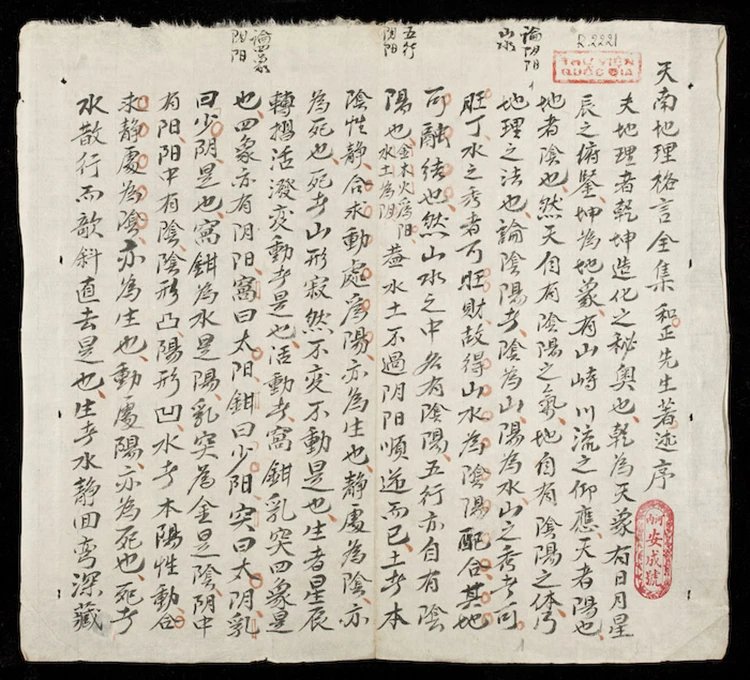 R.2221
THƯ VIỆN
QUỐC GIA
論阴阳
山水
五行
阴阳
論四象
阴阳
天南地理格言全集 和正先生著述序
夫地理者乾坤造化之秘奥也乾為天象有日月星
辰之俯鑒坤為地象有山峙川流之仰應天者陽也
地者陰也然天自有陰陽之氣地自有陰陽之体乃
地理之法也論陰陽者陰為山陽為水山之秀者可
旺丁水之秀者可旺財故得山水為陰陽配合其地
可融結也然山水之中各有陰陽五行亦自有陰
陽也金木火為陽水土為阴蓋水土不過阴阳順逆而已土者本
陰性静合求動處為陽亦為生也静處為陰亦
為死也死者山形寂然不变不動是也生者星辰
轉摺活潑变動者是也活動者窩鉗乳突四象是
也四象亦有阴阳窩曰太阳鉗曰少阳突曰太阴乳
曰少阴是也窩鉗為水是陽乳突為金是陰阴中
有阳阳中有陰陰形凸陽形凹水者本陽性動合
求静處為陰亦為生也動處陽亦為死也死者
水散行而欹斜直去是也生者水静回弯深藏
安成號